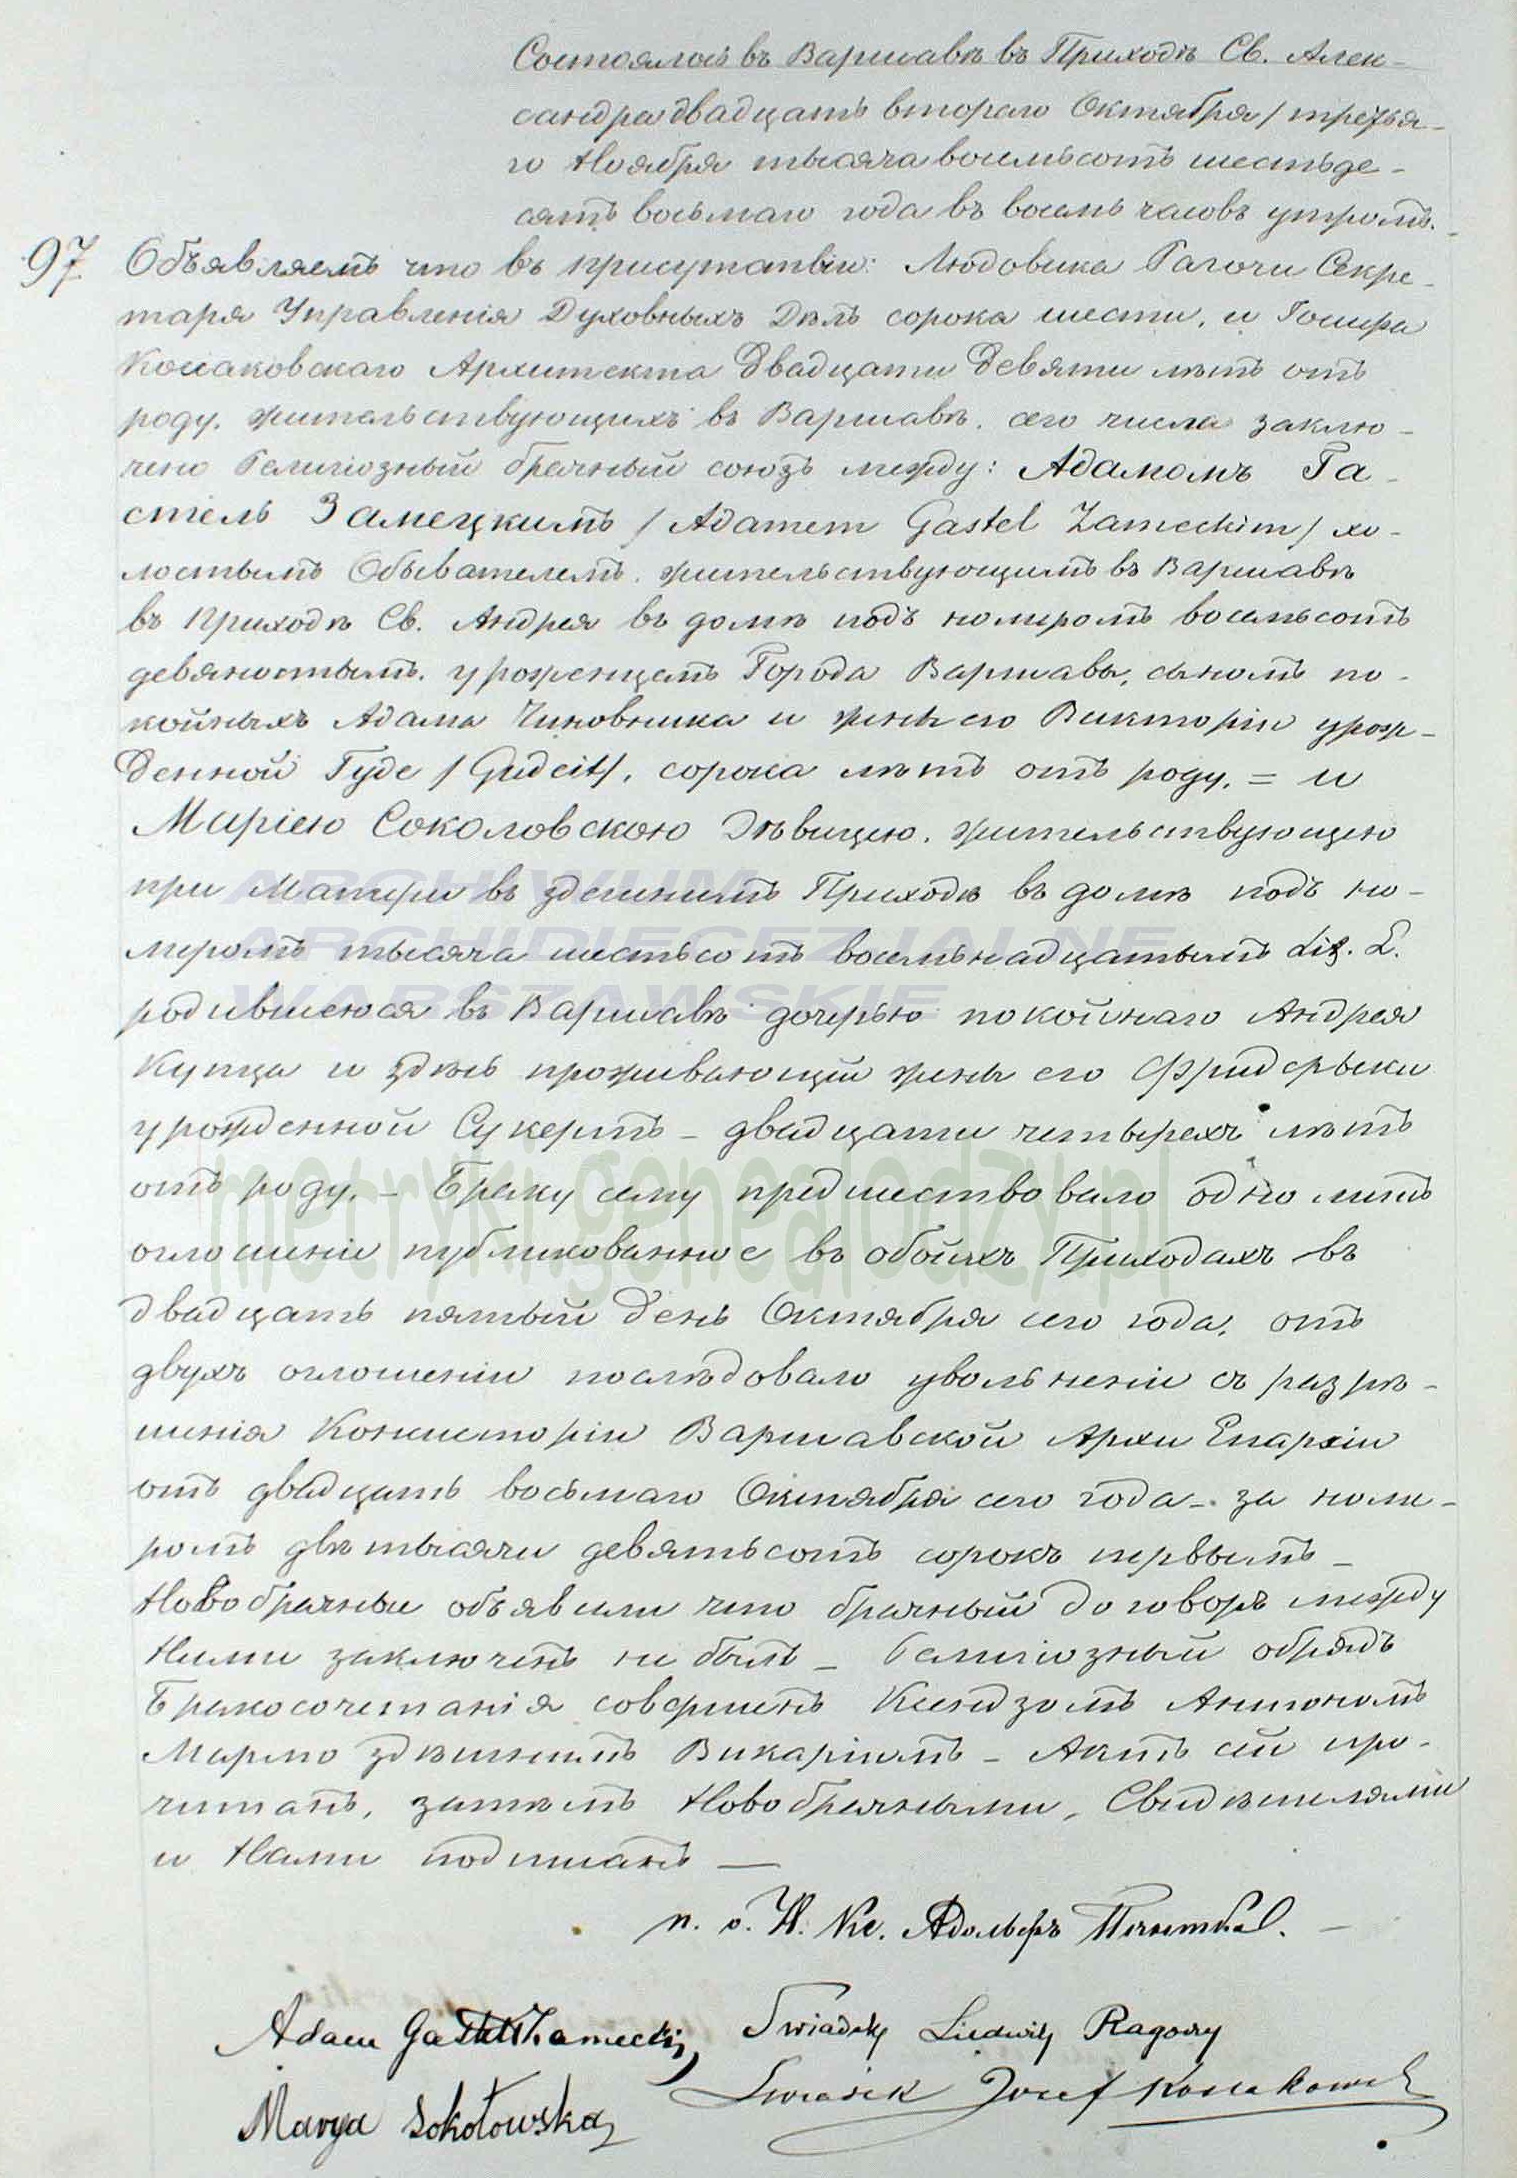 Состоялось въ Варшавѣ въ Приходѣ Св. Алек-
сандра двадцать втораго Октября / третья-
го Ноября тысяча восемьсотъ шестьде-
сятъ восьмаго года въ восемь часовъ утромъ.
97 Объявляемъ что въ присутствіи: Людовика Рагочи Секре-
таря Управленія Духовныхъ Дѣлъ сорока шести, и Іосифа
Косаковскаго Архитекта Двадцати Девяти лѣтъ отъ
роду, жительствующихъ въ Варшавѣ, сего числа заклю-
чено Религіозный брачный союзъ между: Адамомъ Га-
стель Замецкимъ / Adamem Gastel Zameckim / хо-
лостымъ Обывателемъ, жительствующимъ въ Варшавѣ
въ Приходѣ Св. Андрея въ домѣ подъ номеромъ восемьсотъ
девяностымъ, урожденцемъ Города Варшавы, сыномъ по-
койныхъ Адама Чиновника и жены его Викторіи урож-
Денной Гуде / Gudeit /, сорока лѣтъ отъ роду. = и
Маріею Соколовскою Дѣвицею, жительствующею
при Матери въ здешнимъ Приходѣ въ домѣ подъ но-
меромъ тысяча шестьсотъ восемьнадцатымъ Lit. E.
родившеюся въ Варшавѣ дочерью покойнаго Андрея
Купца и здѣсь проживающій жены его Фридерыки
урожденной Сукертъ – двадцати четырехъ лѣтъ
отъ роду. – Браку сему предшествовало одно лишь
оглошеніе публикованное въ обоихъ Приходахъ въ
двадцать пятый День Октября сего года, отъ
двухъ оглошеніи послѣдовало увольненіи съ разрѣ-
шенія Консисторіи Варшавской Архи Епархіи
отъ двадцать восьмаго Октября сего года – за номе-
ромъ двѣ тысячи девятьсотъ сорокъ первымъ –
Новобрачные объявили что брачный договоръ между
Ними заключенъ не былъ – Религіозный обрядъ
Бракосочетанія совершенъ Ксендзомъ Антономъ
Мармо здѣшнимъ Викаріемъ – Актъ сей про-
читанъ, затѣмъ Новобрачными, Свидѣтелями
и Нами подписанъ —
п. о. Н. Кс. Адольфъ
Adam Gastel Zamecki, Swiadek Ludwik Ragoczy
Swiadek Jozef Kossakowski
Marya Sokołowska
ARCHIWUM
ARCHIDIECEZJALNE
WARSZAWSKIE
metryki.genealodzy.pl